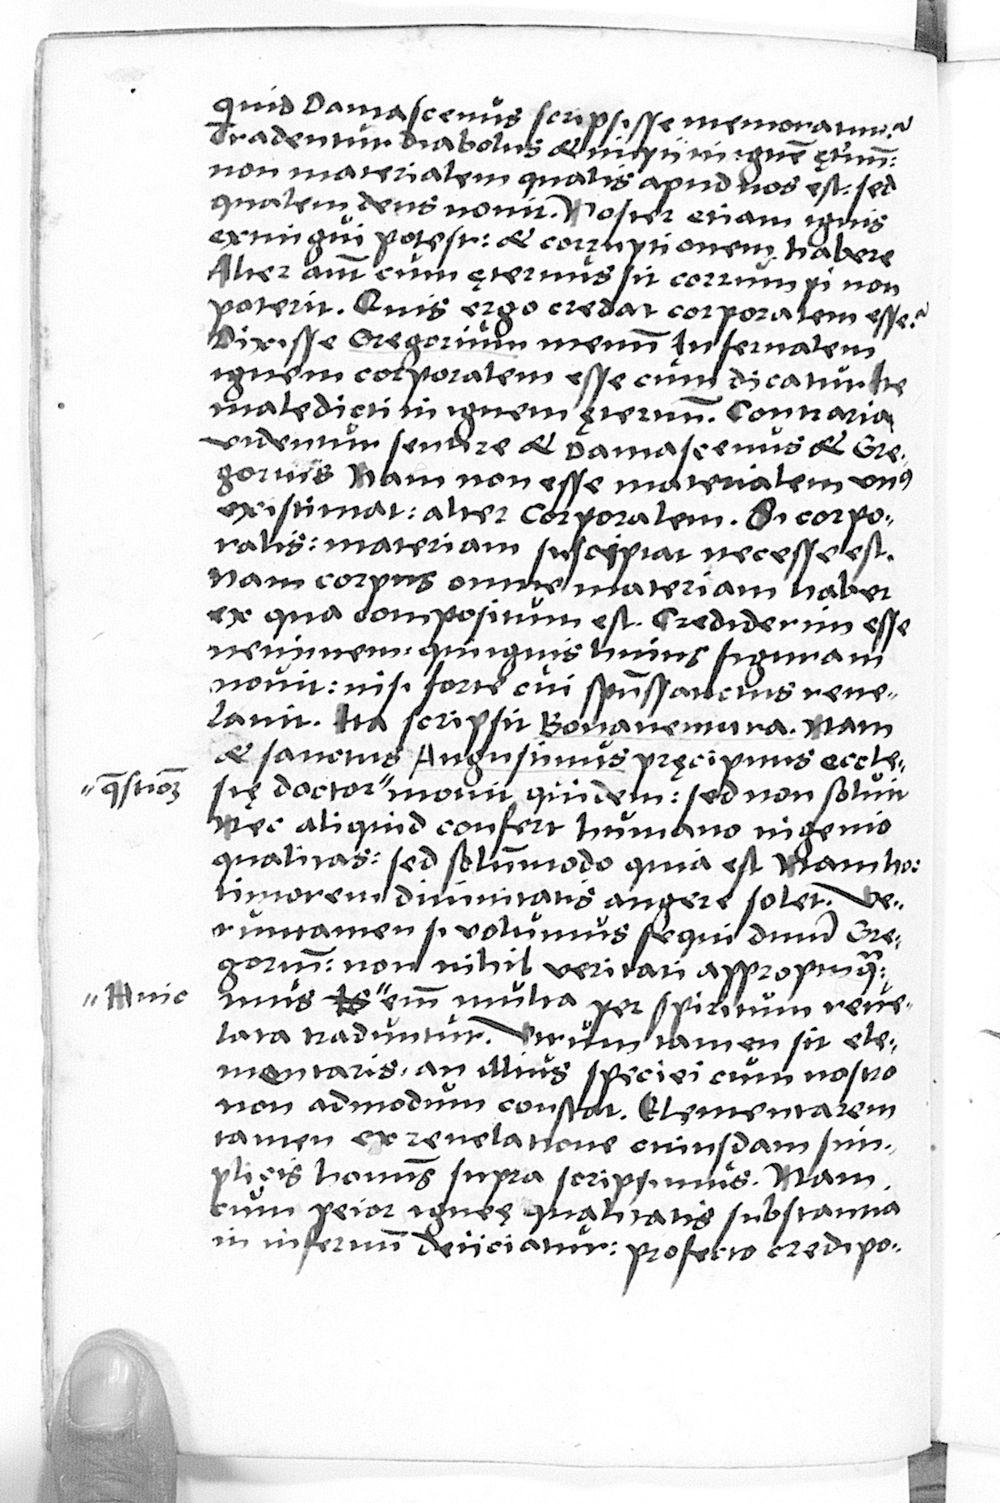 Quid Damascenus scripsisse memoratur?
Tradentur diabolus & impii in ignē ęt̄nū:
non materialem qualis apud nos est: sed
qualem deus novit. Noster etiam ignis
extingui potest: & corruptionem habere
Alter aūt cum ęternus sit corrumpi non
poterit. Quis ergo credat corporalem esse?
Dixisse Gregorium memī Infernalem
ignem corporalem esse cum dicatur Ite
maledicti in ignem ęternū. Contraria
videntur sentire & Damascenus & Gre-
gorius Nam non esse materialem un9
existimat: alter Corporalem. Si corpo-
ralis: materiam suscipiat necesse est.
Nam corpus omne materiam habet
ex qua compositum est. Crediderim esse
neminem: qui ignis huius figuram
novit: nisi forte cui spūssanctus reve-
lavit. Ita scripsit Bonaventura. Nam
& sanctus Augustinus pręcipuus eccle-
"q̄stionē
się doctor" movit quidem: sed non solvit
Nec aliquid confert humano ingenio
qualitas: sed solūmodo quia est Nam ho:
timorem divinitatis augere solet. Ve-
runtamen si volumus sequi divū Gre-
goriū: non nihil veritati appropinq̄:
"Huic
mus "enī multa per spiritum reve-
lata traduntur. Utrum tamen sit ele-
mentaris, an illius speciei cum nostro
non admodum constat. Elementarem
tamen ex revelatione cuiusdam sim-
plicis homīs supra scripsimus. Nam
cum peior igneę qualitatis substantia
in infernū deiiciatur: profecto credi po-